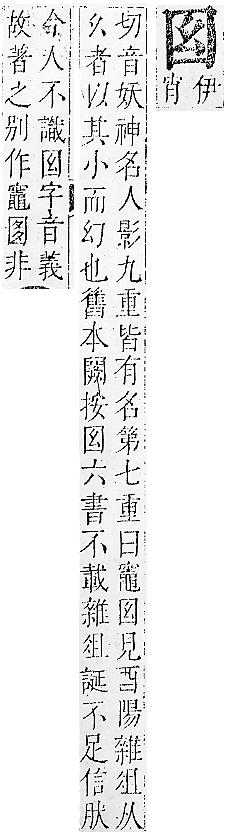 㘝
伊
宵
切音妖神名人影九重皆有名第七重曰竈㘝見酉陽雜俎从
幺者以其小而幻也舊本闕按㘝六書不載雜俎誕不足信肰
今人不識㘝字音義
故著之別作竈非